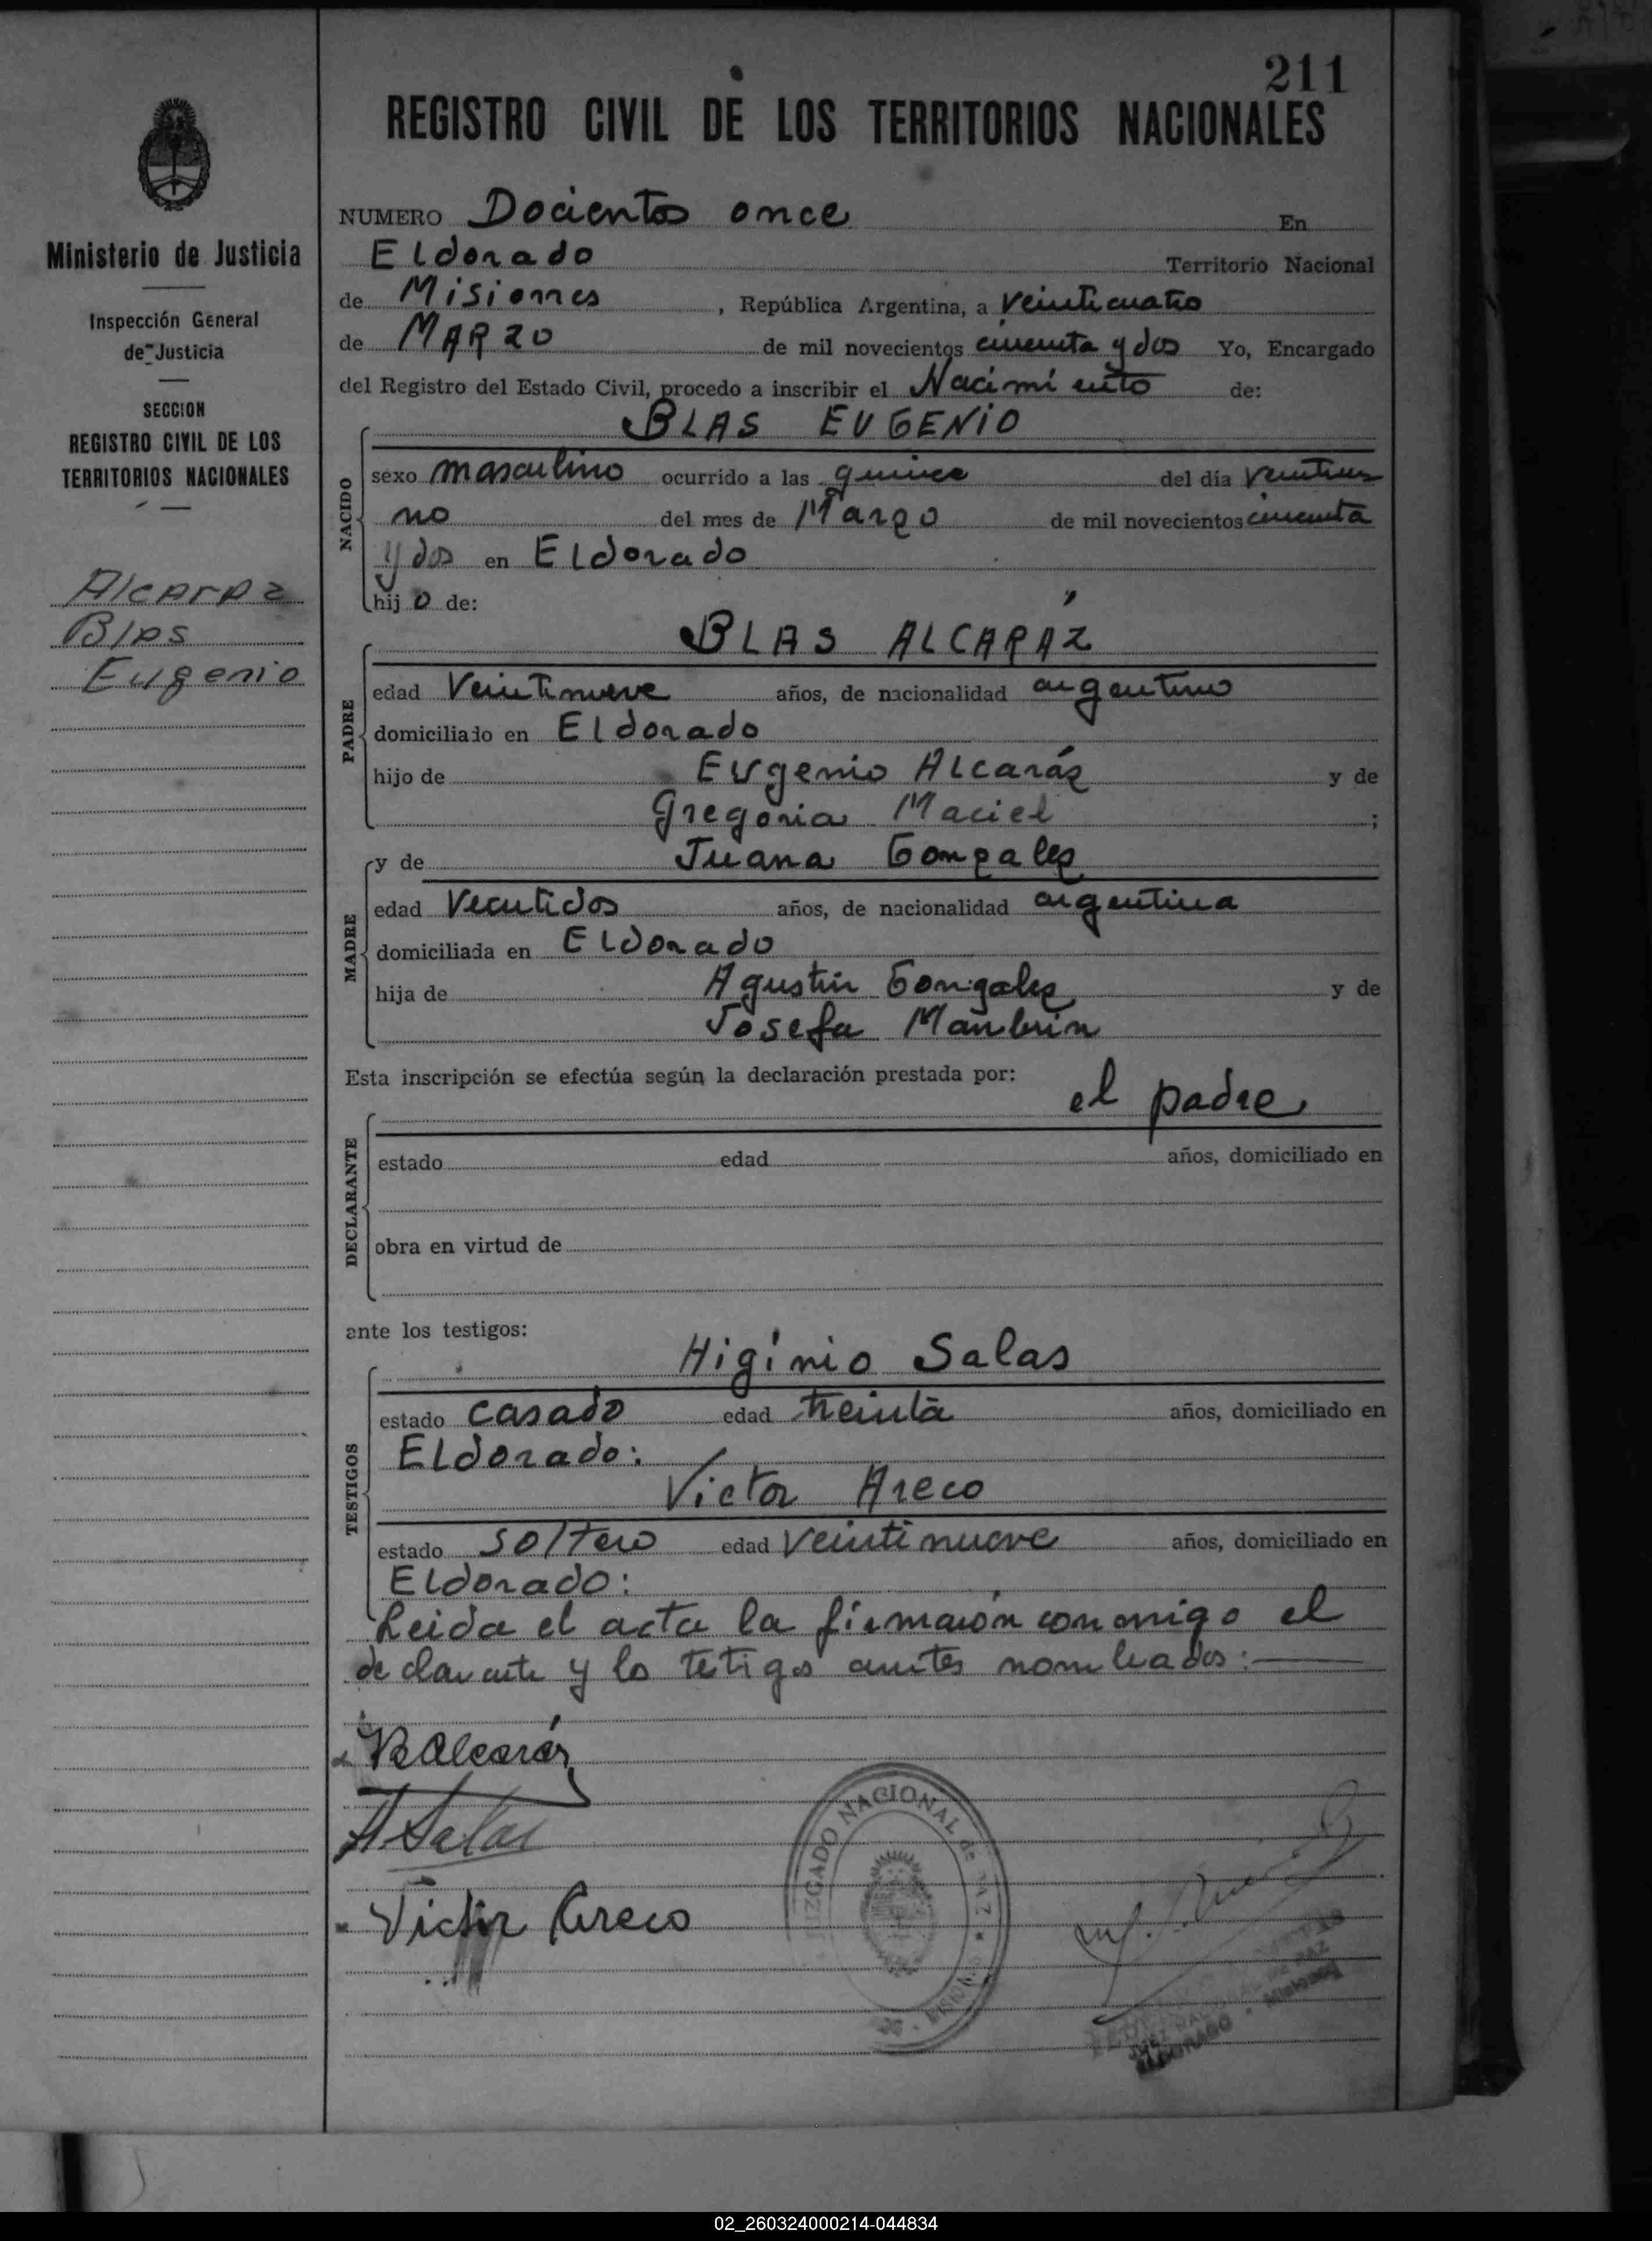 211
REGISTRO CIVIL DE LOS TERRITORIOS NACIONALES
Ministerio de Justicia
Inspección General
de Justicia
SECCION
REGISTRO CIVIL DE LOS
TERRITORIOS NACIONALES
Alcaraz
Blas
Eugenio
NUMERO Docientos once En
Eldorado Territorio Nacional
de Misiones, República Argentina, a veinticuatro
de MARZO de mil novecientos cincuenta y dos Yo, Encargado
del Registro del Estado Civil, procedo a inscribir el Nacimiento de:
BLAS EUGENIO
NACIDO
sexo masculino ocurrido a las quince del día veintiu
no del mes de Marzo de mil novecientos cincuenta
y dos en Eldorado
hijo de:
BLAS ALCARÁZ
PADRE
edad Veintinueve años, de nacionalidad argentino
domiciliado en Eldorado
hijo de Eugenio Alcaráz y de
Gregoria Maciel ;
y de Juana Gonzalez
MADRE
edad Veintidos años, de nacionalidad argentina
domiciliada en Eldorado
hija de Agustin Gonzalez y de
Josefa Manbrin
Esta inscripción se efectúa según la declaración prestada por:
el padre
DECLARANTE
estado edad años, domiciliado en
obra en virtud de
ante los testigos:
Higinio Salas
TESTIGOS
estado casado edad treinta años, domiciliado en
Eldorado:
Victor Areco
estado soltero edad veintinueve años, domiciliado en
Eldorado:
Leida el acta la firmaron conmigo el
declarante y los testigos antes nombrados:
B Alcaráz
H Salas
Victor Areco
JUZGADO NACIONAL de PAZ
ELDORADO - Misiones
02_260324000214-044834